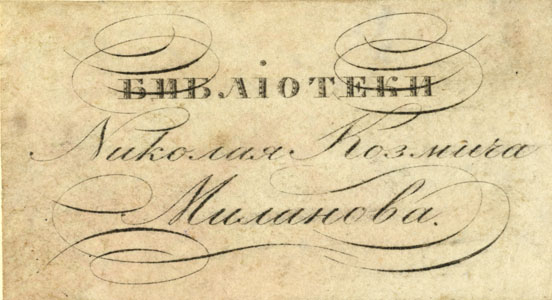 БИБЛІОТЕКИ
Николая Козмича
Миланова.